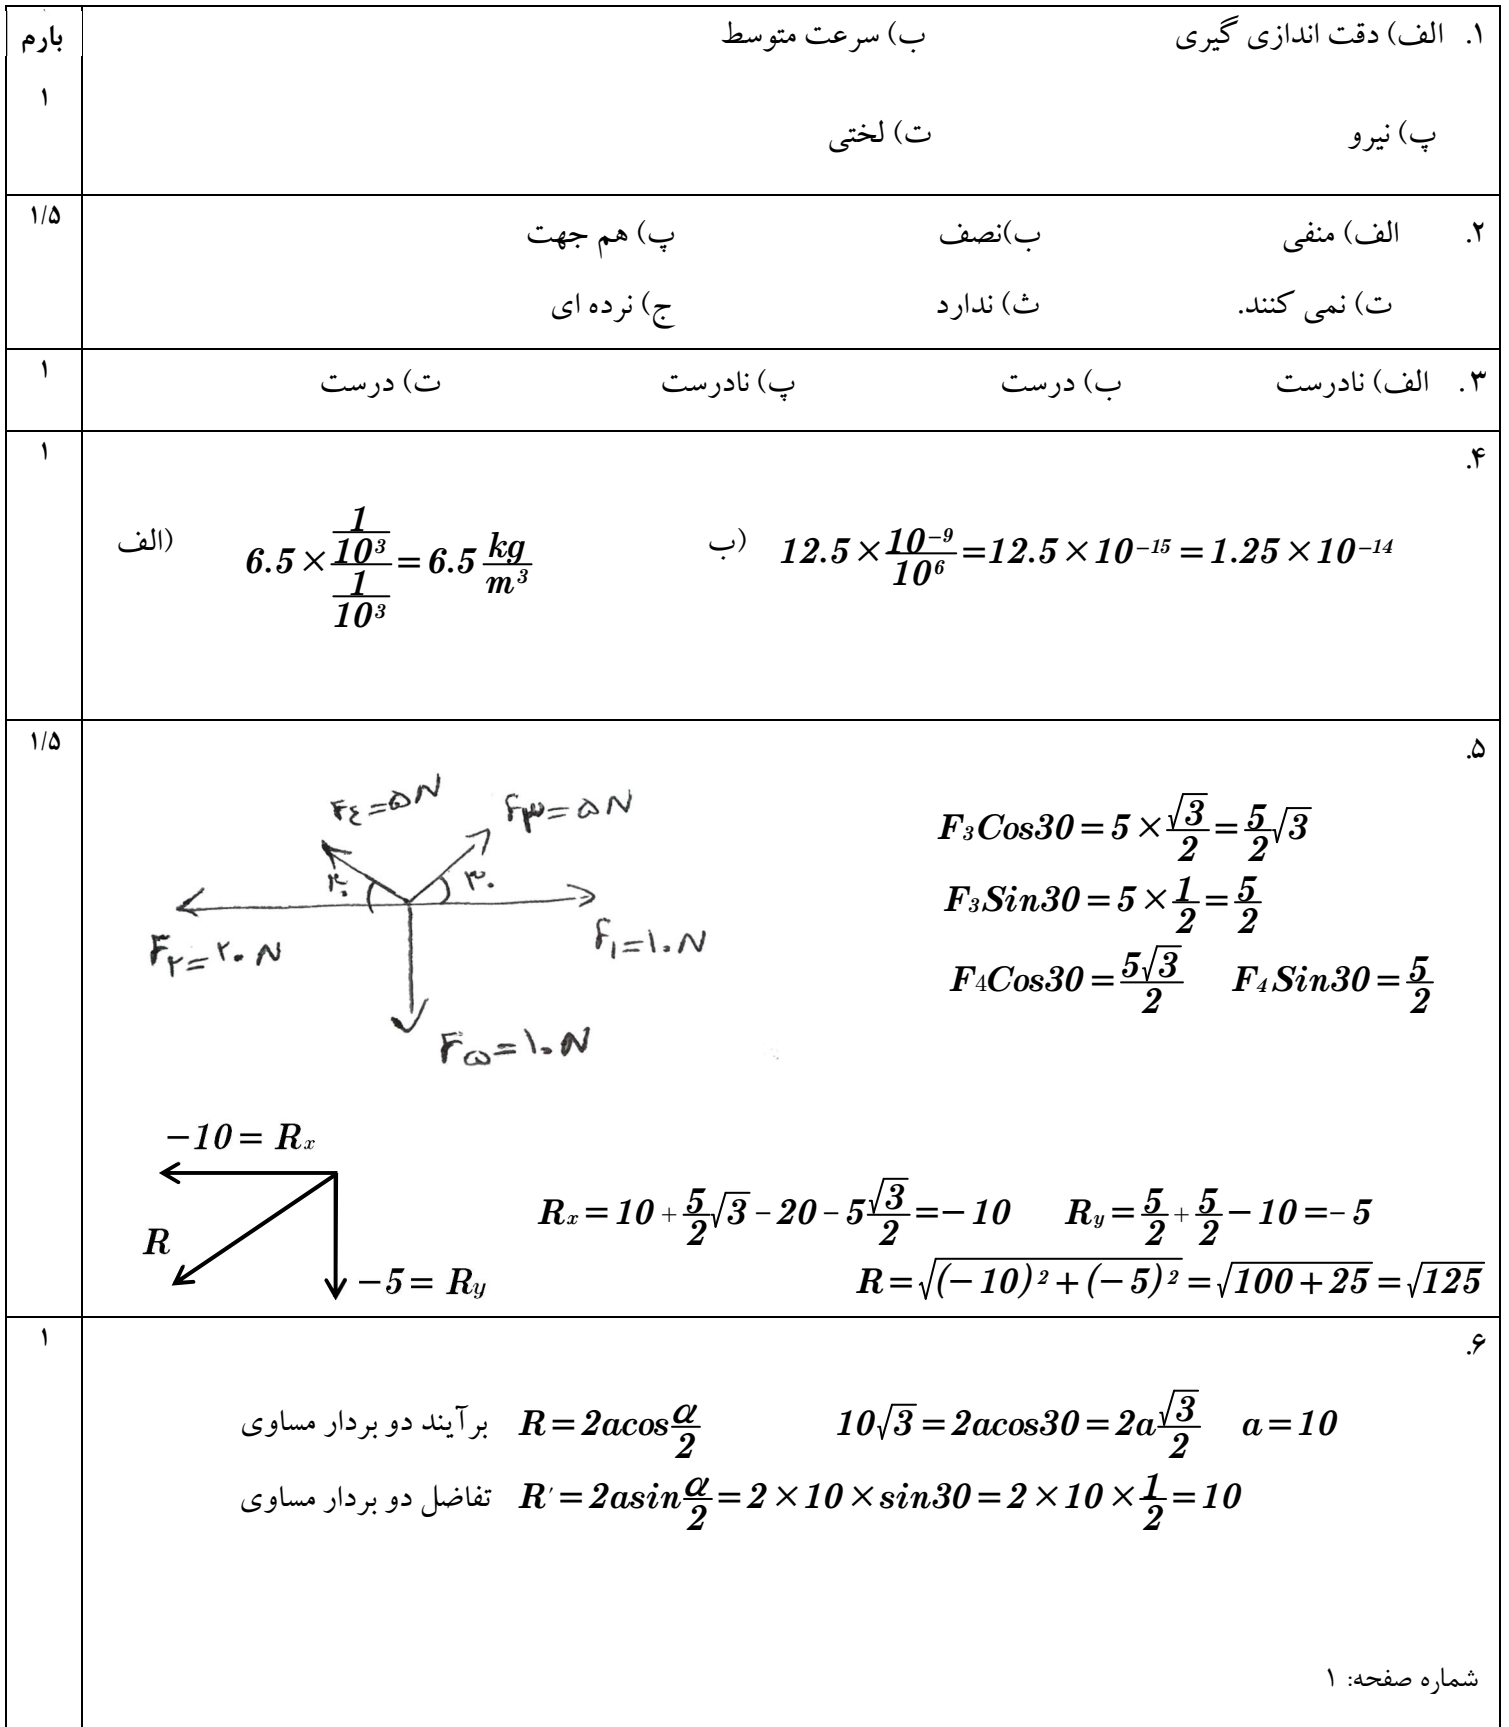 بارم
۱. الف) دقت اندازی گیری ب) سرعت متوسط
۱
پ) نیرو ت) لختی
۱/۵
۲. الف) منفی ب)نصف پ) هم جهت
ت) نمی کنند. ث) ندارد ج) نرده ای
۱
۳. الف) نادرست ب) درست پ) نادرست ت) درست
۱
۴.
الف) 6.5 × (1/10³)/(1/10³) = 6.5 kg/m³ ب) 12.5 × 10⁻⁹/10⁶ = 12.5 × 10⁻¹⁵ = 1.25 × 10⁻¹⁴
۱/۵
۵.
F₄=۵N F۳=۵N
F₃Cos30 = 5 × √3/2 = 5/2 √3
۳۰ ۳۰
F₃Sin30 = 5 × 1/2 = 5/2
F۲=۲۰N F۱=۱۰N
F4Cos30 = 5√3/2 F₄Sin30 = 5/2
F۵=۱۰N
−10 = Rx
Rx = 10 + 5/2 √3 − 20 − 5 √3/2 = −10 Ry = 5/2 + 5/2 − 10 = −5
R
−5 = Ry
R = √((−10)² + (−5)²) = √(100 + 25) = √125
۱
۶.
برآیند دو بردار مساوی R = 2acos α/2 10√3 = 2acos30 = 2a √3/2 a = 10
تفاضل دو بردار مساوی R′ = 2asin α/2 = 2 × 10 × sin30 = 2 × 10 × 1/2 = 10
شماره صفحه: ۱